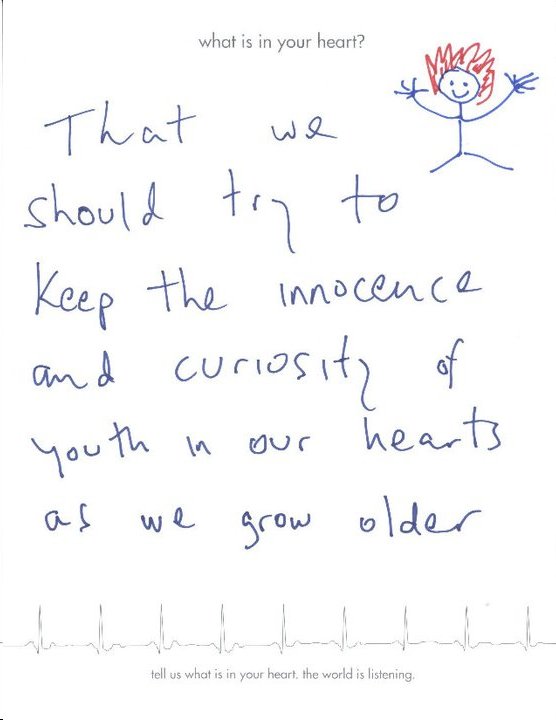 what is in your heart?
That we
should try to
keep the innocence
and curiosity of
youth in our hearts
as we grow older
tell us what is in your heart. the world is listening.